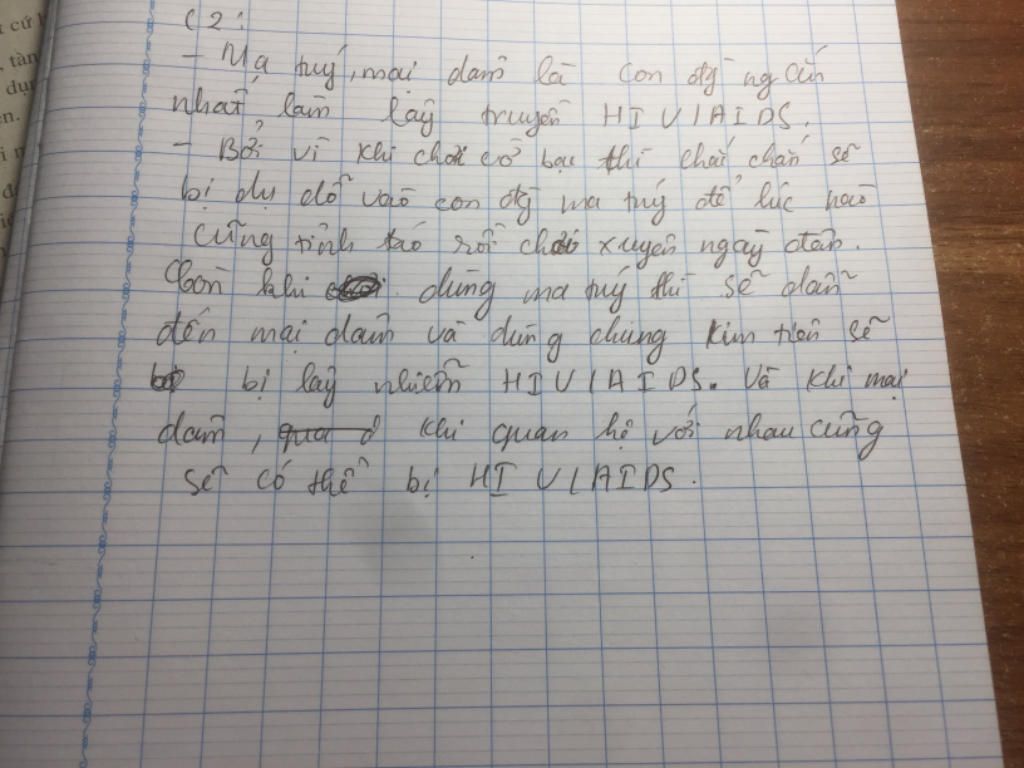 C2:
- Ma tuý, mại dâm là con đg ngắn
nhất làm lây truyền HIV/AIDS.
- Bởi vì khi chơi cờ bạc thì chắc chắn sẽ
bị dụ dỗ vào con đg ma tuý để lúc nào
cũng tỉnh táo rồi chơi xuyên ngày đêm.
Còn khi dùng ma tuý thì sẽ dẫn
đến mại dâm và dùng chung kim tiêm sẽ
bị lây nhiễm HIV/AIDS. Và khi mại
dâm, khi quan hệ với nhau cũng
sẽ có thể bị HIV/AIDS.